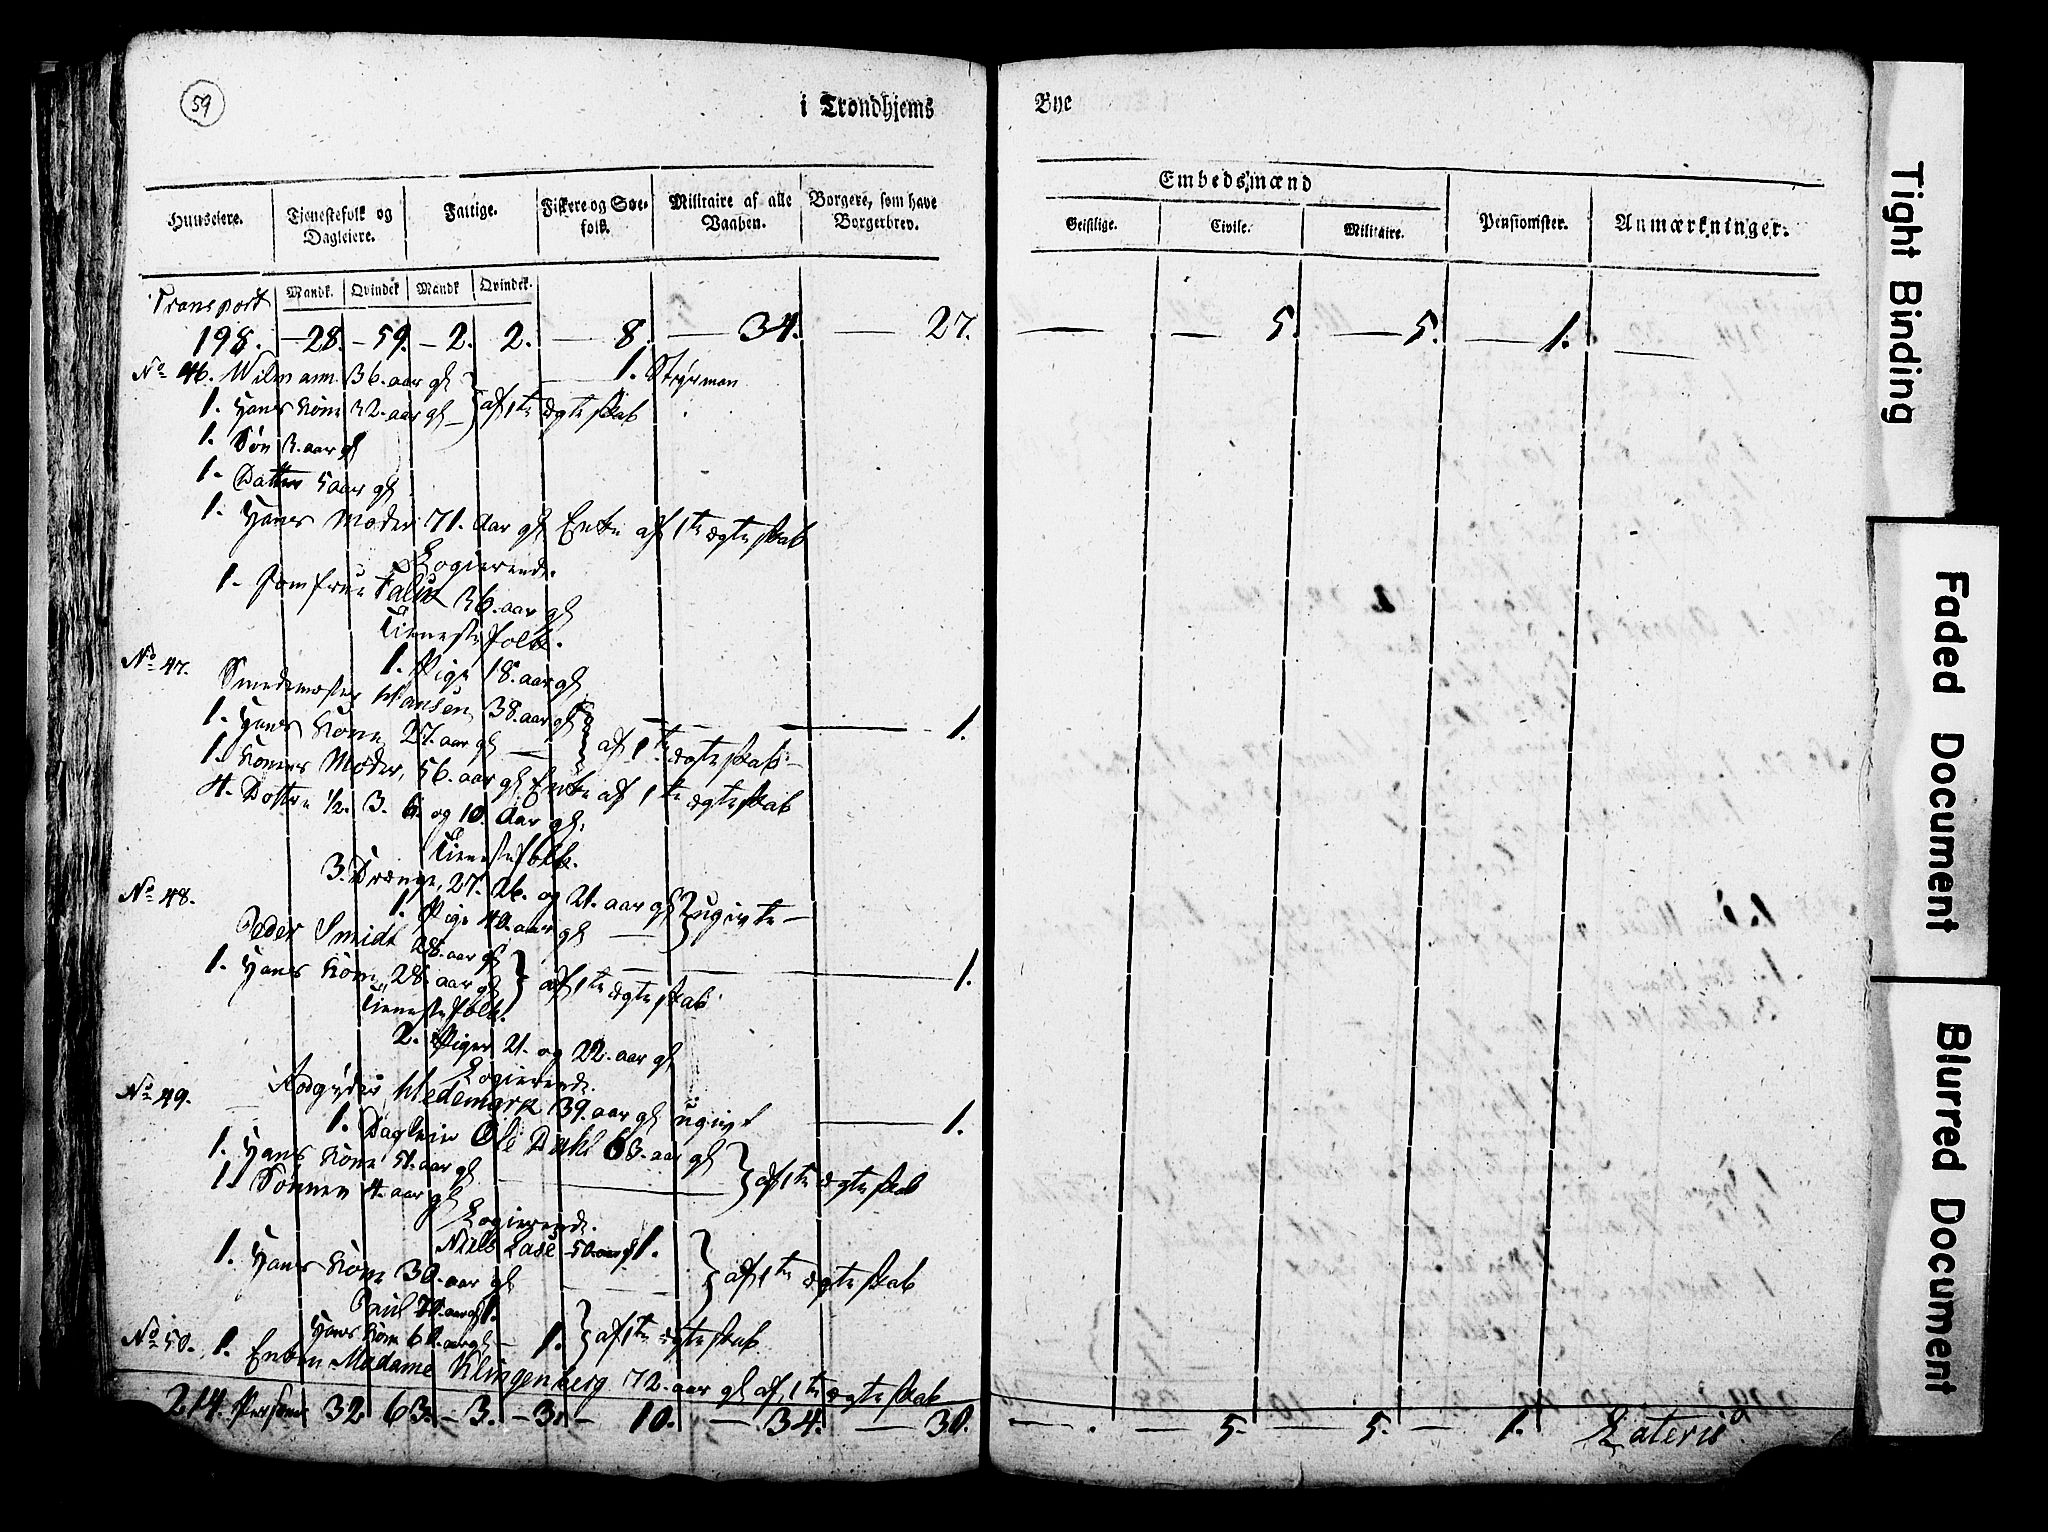 59
i Trondhjems
Bye
Huuseiere.
Tjenestefolk og Dagleiere.
Fattige.
Fiskere og Søefolk.
Militaire af alle Vaaben.
Borgere, som have Borgerbrev.
Embedsmænd
Geistlige.
Civile.
Militaire.
Pensionister.
Anmærkninger.
Mandk. Qvindek Mandk Qvindek.
Transport
198. — 28. — 59. — 2. 2. — 8. — 34. — 27. — 5. — 5. — 1. —
No 46. Wilmann 36. aar gl — 1. Styrman
1. Hans Kone 32. aar gl — } af 1te ægteskab
1. Søn 3. aar gl
1. Datter 5 aar gl
1. Hans Moder 71. Aar gl Enke af 1te ægteskab
Logierende.
1. Jomfrue Falch 36. aar gl
Tienestefolk.
1. Pige 18. aar gl
No 47.
Smedemester Hansen 38. aar gl — 1.
1. Hans Kone 27. aar gl — } af 1te ægteskab —
1. Konens Moder, 56. aar gl Enke af 1te ægteskab
4. Døttre 1/2. 3. 6. og 10. Aar gl.
Tienestefolk.
3. Drænge, 27. 26. og 21. aar gl } ugivte —
No 48.
1. Pige 40. aar gl —
Peder Smidt 28. aar gl — 1.
1. Hans Kone, 28. aar gl } af 1te ægteskab.
Tienestefolk.
2. Piger 21. og 22. aar gl
Logierende.
No 49.
Hedemark 39. aar gl ugivt — 1.
1. Dagleier Ole Dahl 63. aar gl
1. Hans Kone 51. aar gl — } af 1te ægteskab
1. Sønnen 4. aar gl
Logierende.
Niels Lase 50. aar gl 1.
1. Hans Kone 30. aar gl — } af 1te ægteskab
Paul 70. aar gl 1.
Hans Kone 60. aar gl — 1. } af 1te ægteskab
No 50. 1. Enken Madame Klingenberg 72. aar gl af 1te ægteskab
214. Personer 32. 63. — 3. — 3. — 10. — 34. — 30. — . — 5. — 5. — 1. Lateris
Tight Binding
Faded Document
Blurred Document